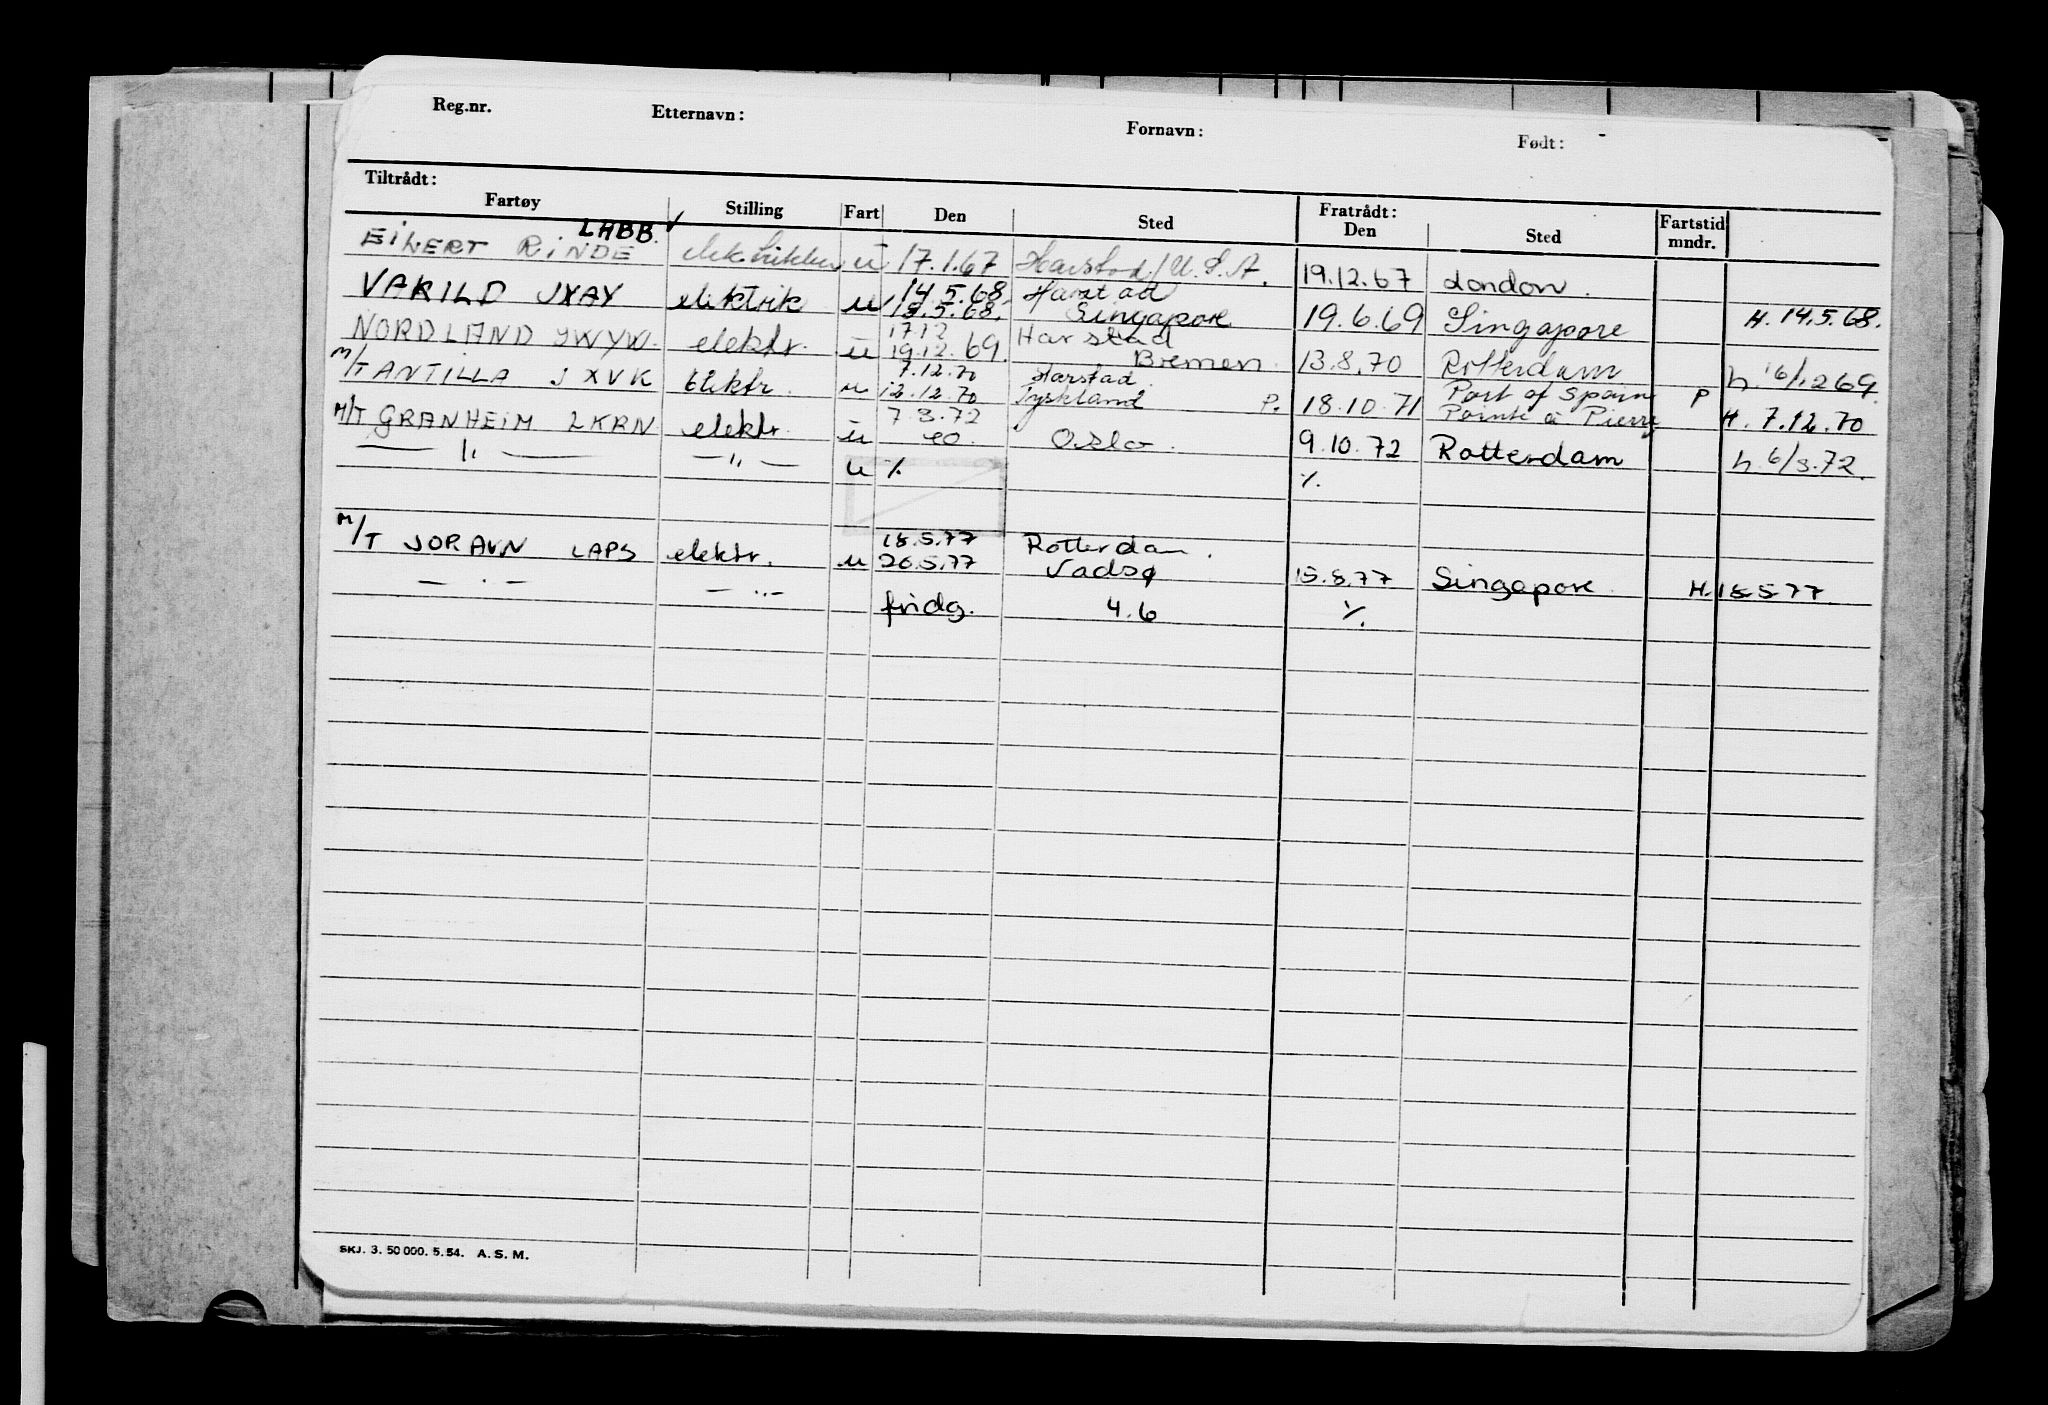 Reg.nr. Etternavn: Fornavn: Født:
Tiltrådt: Fratrådt:
Fartøy Stilling Fart Den Sted Den Sted Fartstid mndr.
EILERT RINDE LHBB. u 17.1.67 Harstad/U.S.A. 19.12.67 London.
VARILD JXAY elektrik u 14.5.68 Harstad
15.5.68. Singapore 19.6.69 Singapore H. 14.5.68.
NORDLAND JWYW. elektr. u 17.12 Harstad
19.12.69. Bremen. 13.8.70 Rotterdam h. 16/12 69
M/T ANTILLA JXVK elektr. u 7.12.70 Harstad.
12.12.70 Tyskland P. 18.10.71 Port of Spain P
Pointe à Pierre H. 7.12.70
M/T GRANHEIM LKRN elektr. u 7.3.72
Oslo. 9.10.72 Rotterdam h. 6/3.72.
— " — — " — u % %
M/T JORAVN LAPS elektr. u 18.5.77 Rotterdam.
26.5.77 Vadsø 15.8.77 Singapore. H. 18.5.77
— " — — " — fridg. 4.6 %
SKJ. 3. 50 000. 5. 54. A. S. M.